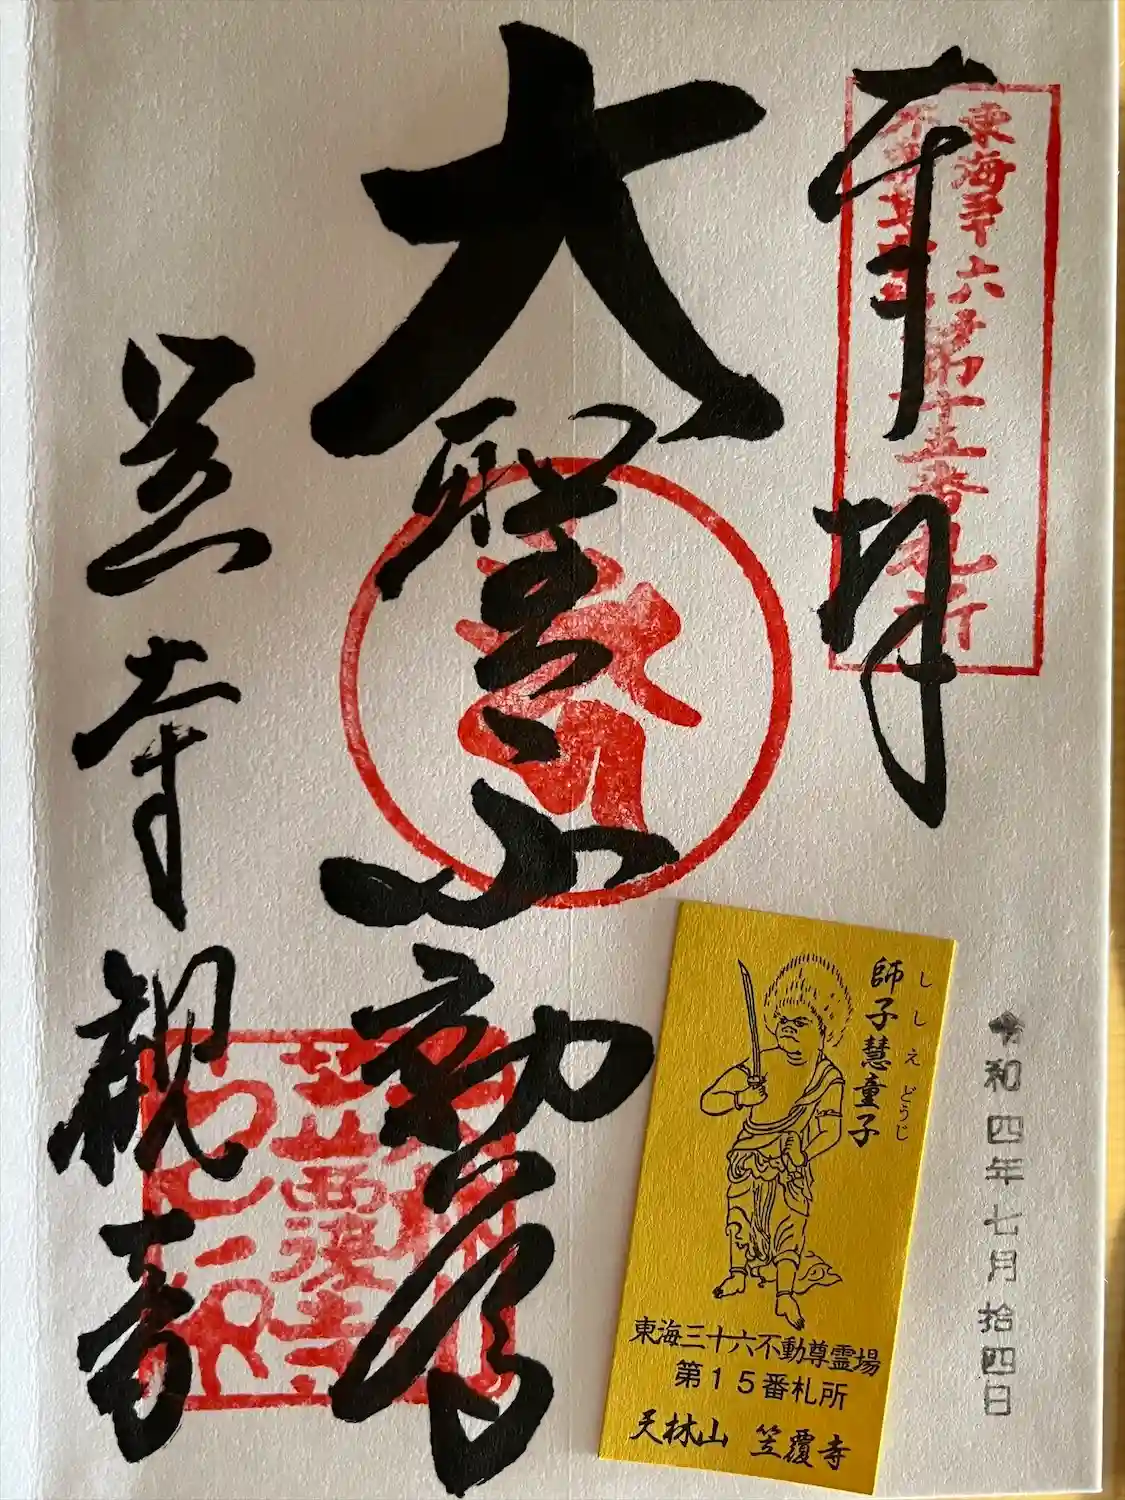 奉拝
東海三十六
不動尊霊場
第十五番札所
大聖不動尊
笠寺観音
令和四年七月拾四日
師子慧童子
ししえどうじ
東海三十六不動尊霊場
第15番札所
天林山 笠覆寺